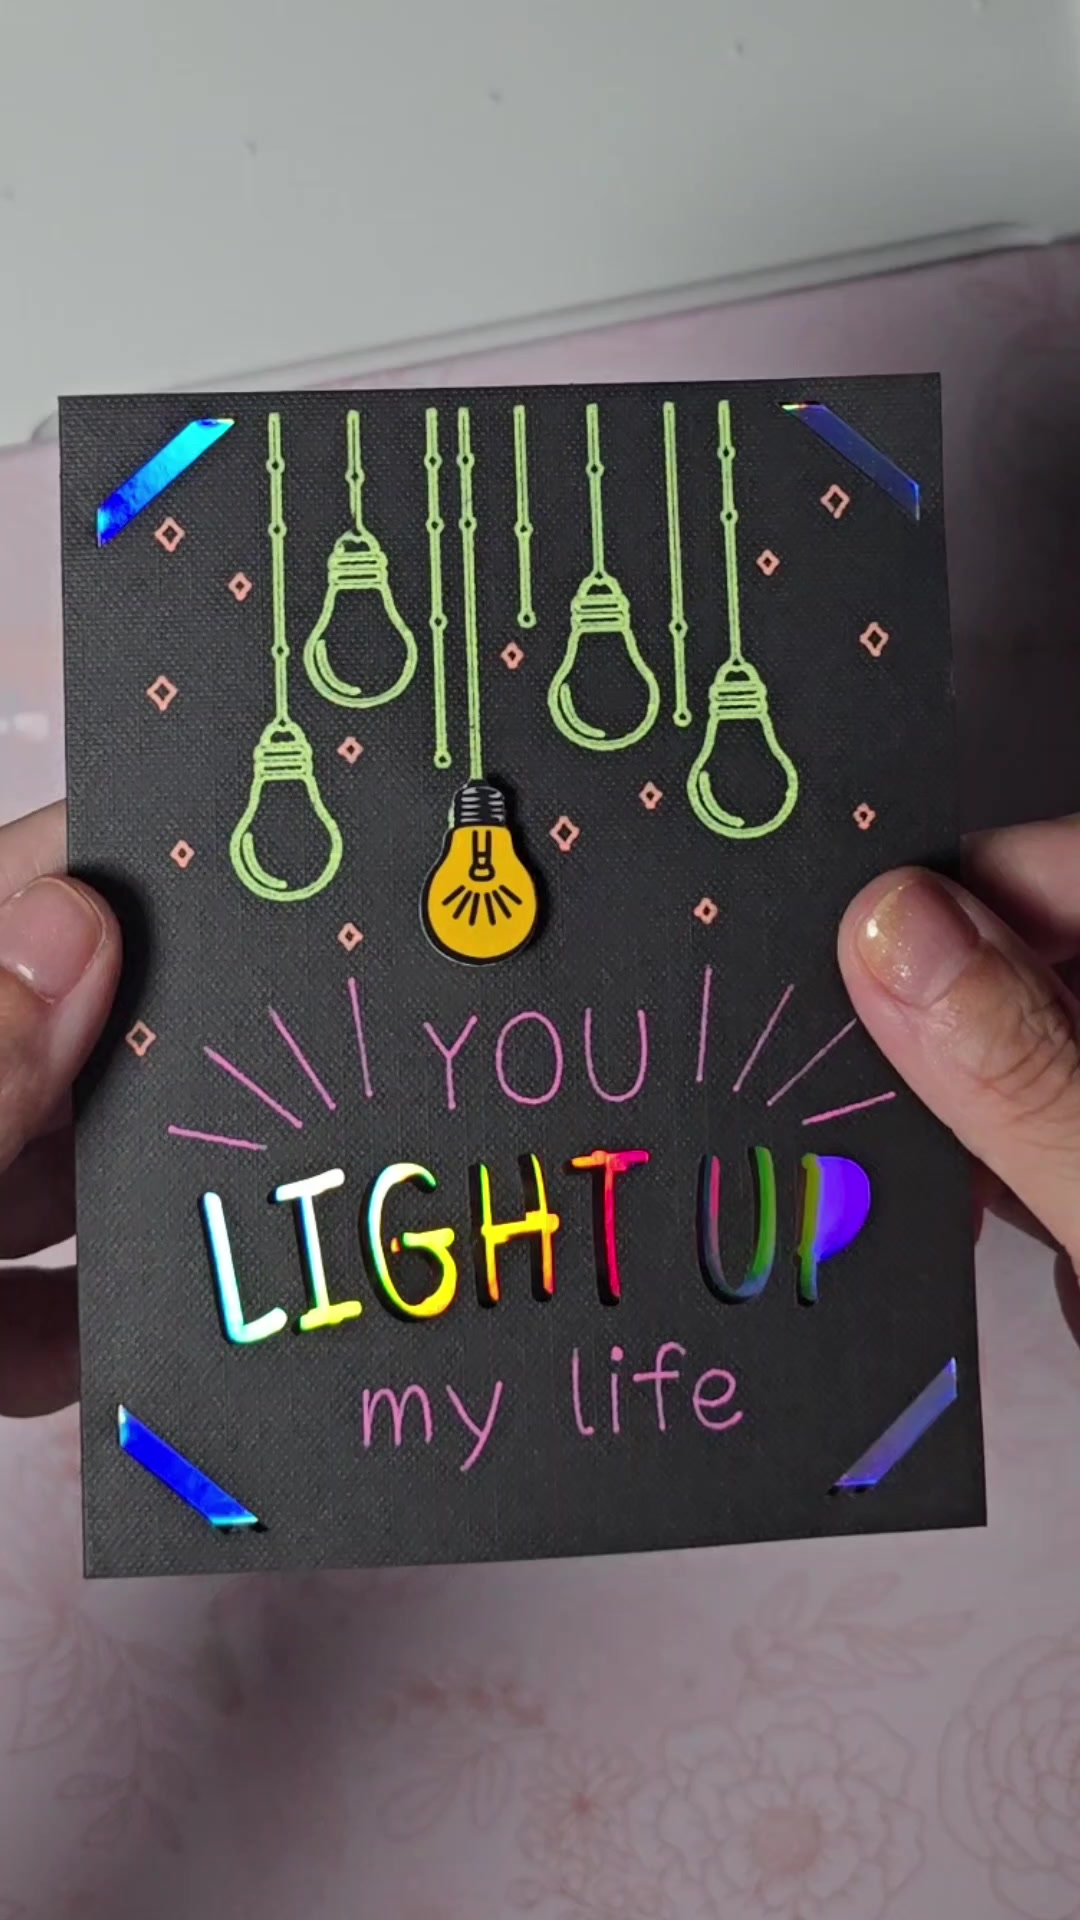 YOU
LIGHT UP
my life